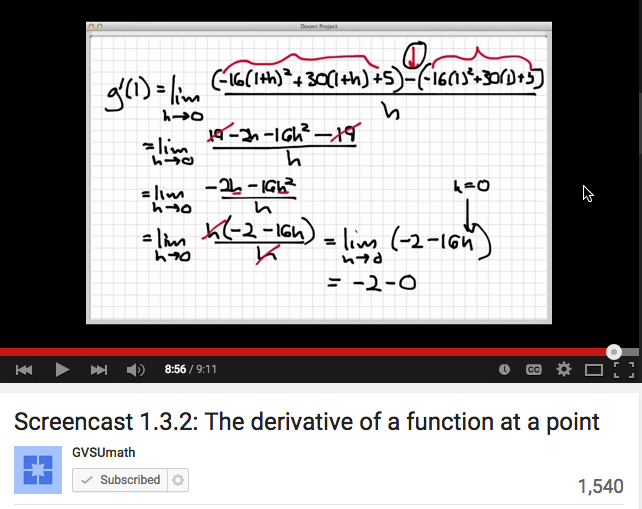 Doceri Project
g'(1) = lim h→0 (-16(1+h)² + 30(1+h) + 5) - (-16(1)² + 30(1) + 5) / h
= lim h→0 19 - 2h - 16h² - 19 / h
= lim h→0 -2h - 16h² / h
h=0
= lim h→0 h(-2 - 16h) / h = lim h→0 (-2 - 16h)
= -2 - 0
8:56 / 9:11
CC
Screencast 1.3.2: The derivative of a function at a point
GVSUmath
Subscribed
1,540